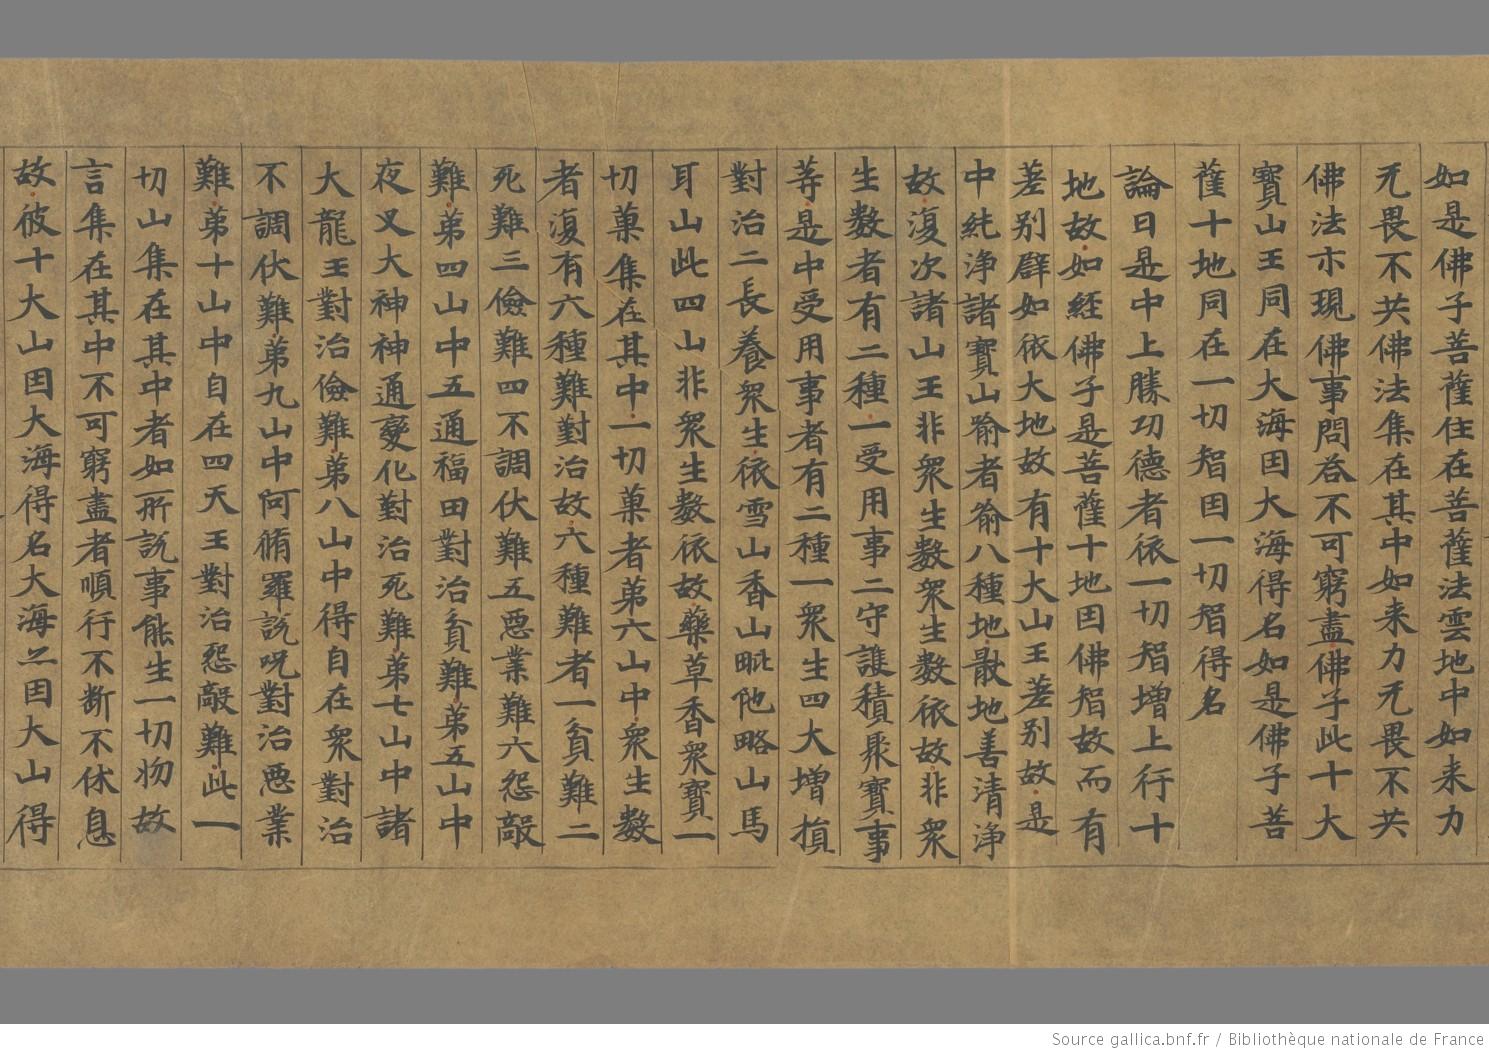 如是佛子菩薩住在菩薩法雲地中如来力
无畏不共佛法集在其中如来力无畏不共
佛法亦現佛事問荅不可窮盡佛子此十大
寳山王同在大海因大海得名如是佛子菩
薩十地同在一切智因一切智得名
論曰是中上勝功德者依一切智增上行十
地故如経佛子是菩薩十地因佛智故而有
差别譬如依大地故有十大山王差别故是
中純淨諸寳山喻者喻八種地猒地善清淨
故復次諸山王非衆生數衆生數依故非衆
生數者有二種一受用事二守護積聚寳事
等是中受用事者有二種一衆生四大增損
對治二長養衆生依雪山香山毗陁略山馬
耳山此四山非衆生數依故藥草香衆寳一
切菓集在其中一切菓者弟六山中衆生數
者復有六種難對治故六種難者一貧難二
死難三儉難四不調伏難五悪業難六怨敵
難弟四山中五通福田對治貧難弟五山中
夜叉大神神通變化對治死難弟七山中諸
大龍王對治儉難弟八山中得自在衆對治
不調伏難弟九山中阿脩羅説呪對治悪業
難弟十山中自在四天王對治怨敵難此一
切山集在其中者如所説事能生一切物故
言集在其中不可窮盡者順行不断不休息
故彼十大山因大海得名大海亦因大山得